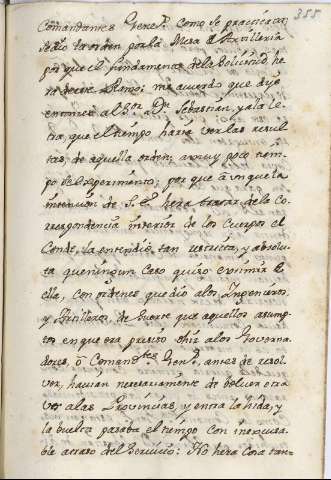 355
Comandantes Gene.s como se practicó a
se dio la orden por la Mesa de Artilleria
por que el fundamento dela Solicitud he
ra de este Ramo: me acuerdo que dije
entonces al S.or D.n Sebastian, y a la le
tra, que el tiempo haria ver las resul
tas, de aquella orden; a muy poco tiem
po se experimentó, por que aunque la
intencion de S.E. hera tratar dela Co
rrespondencia interior de los Cuerpos el
Conde, la entendió tan estricta, y absolu
ta que ningun Caso quiso eximir de
ella, con ordenes que dio a los Ingenieros,
y Artilleros, de suerte que aquellos asump
tos en que era preciso ohir alos Governa
dores, ò Comand.tes Gen.s, antes de resol
ver, havian necesariamente de bolver otra
vez a las Provincias, y entre la hida, y
la buelta pasaba el tiempo con inexcusa
ble atraso del Servicio: No hera Cosa tan